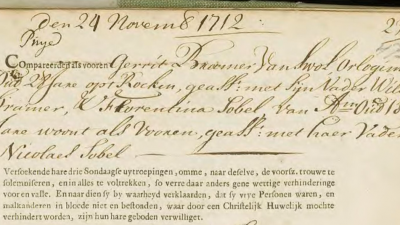 Den 24 Novemb 1712: 2
Prijé
Compareerden als vooren Gerrit Bramer Van Swol Orlogim
Oud 28 Jare op't Rockin, geasst: met sijn Vader Wil
Bramer, & Florentina Sobel, van A:m Oud 18
Jare woont als Vooren, geasst: met haer Vader
Nicolaes Sobel
Versoekende hare drie Sondaagse uytroepingen, omme, naar deselve, de voorsz. trouwe te
solemniseren, en in alles te voltrekken, so verre daar anders gene wettige verhinderinge
voor en valle. En naar dien sy by waarheyd verklaarden, dat sy vrye Personen waren, en
malkanderen in bloede niet en bestonden, waar door een Christelijk Huwelijk mochte
verhindert worden, zijn hun hare geboden verwilligt.